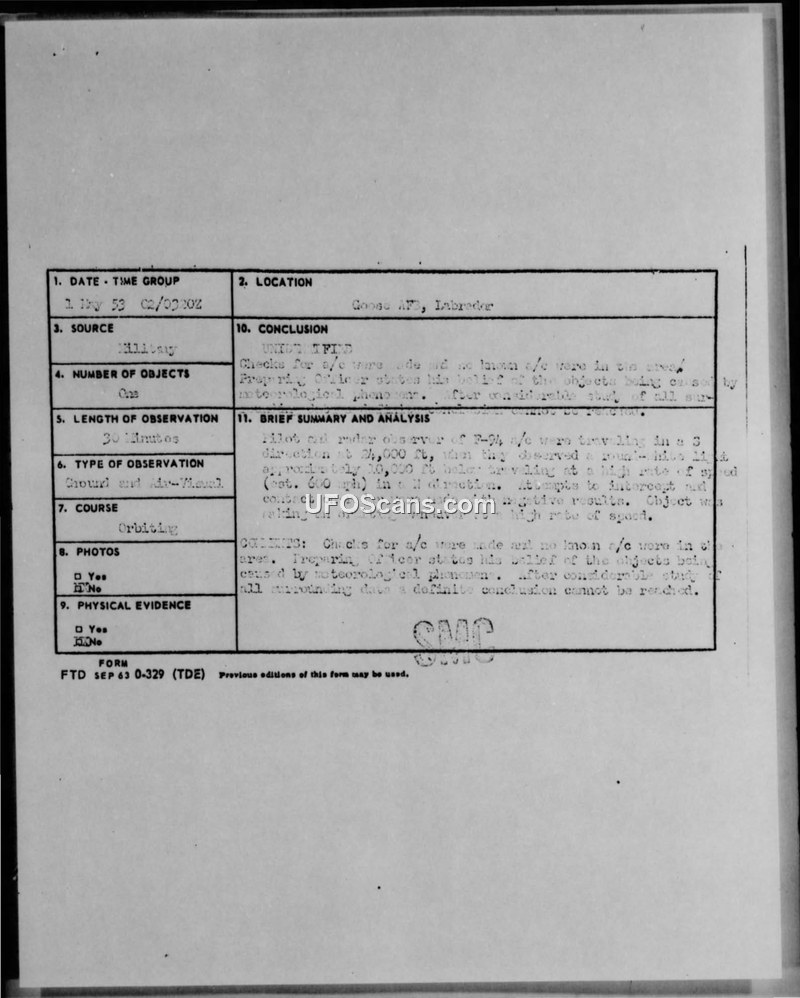 1. DATE - TIME GROUP
1 May 53 02/0320Z
2. LOCATION
Goose AFB, Labrador
3. SOURCE
Military
10. CONCLUSION
UNIDENTIFIED
Checks for a/c were made and no known a/c were in the area.
Preparing Officer states his belief of the objects being caused by
meteorological phenomena. After considerable study of all sur-
cannot be reached.
4. NUMBER OF OBJECTS
One
5. LENGTH OF OBSERVATION
30 Minutes
11. BRIEF SUMMARY AND ANALYSIS
Pilot and radar observer of F-94 a/c were traveling in a S
direction at 24,000 ft, when they observed a round white light
approximately 10,000 ft below traveling at a high rate of speed
(est. 600 mph) in a N direction. Attempts to intercept and
contact negative results. Object was
high rate of speed.
6. TYPE OF OBSERVATION
Ground and Air-Visual
7. COURSE
Orbiting
COMMENTS: Checks for a/c were made and no known a/c were in the
area. Preparing Officer states his belief of the objects being
caused by meteorological phenomena. After considerable study of
all surrounding data a definite conclusion cannot be reached.
8. PHOTOS
□ Yes
No
9. PHYSICAL EVIDENCE
□ Yes
No
FORM
FTD SEP 63 0-329 (TDE) Previous editions of this form may be used.
UFOScans.com